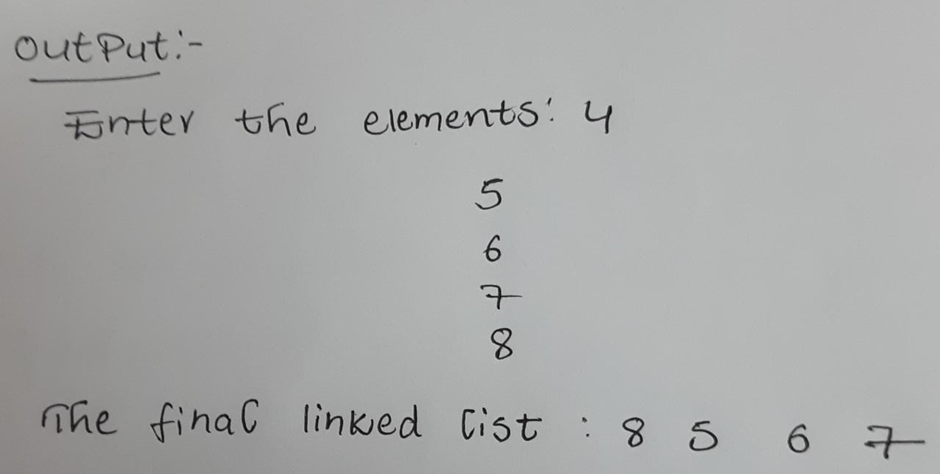 Output:-
Enter the elements: 4
5
6
7
8
The final linked list : 8 5 6 7